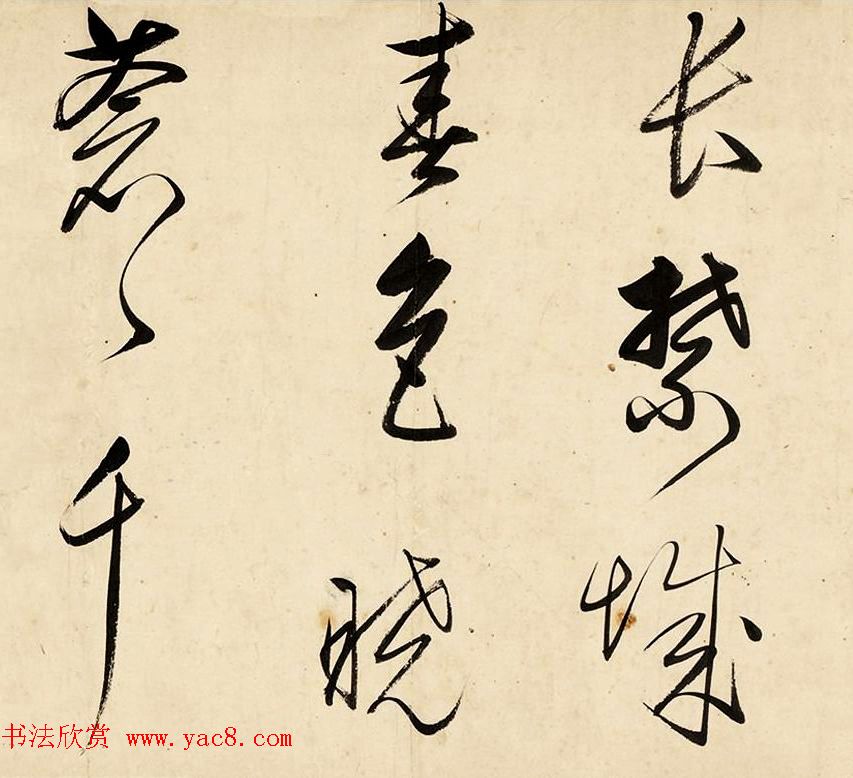 长禁城
春色晓
苍〻千
书法欣赏 www.yac8.com